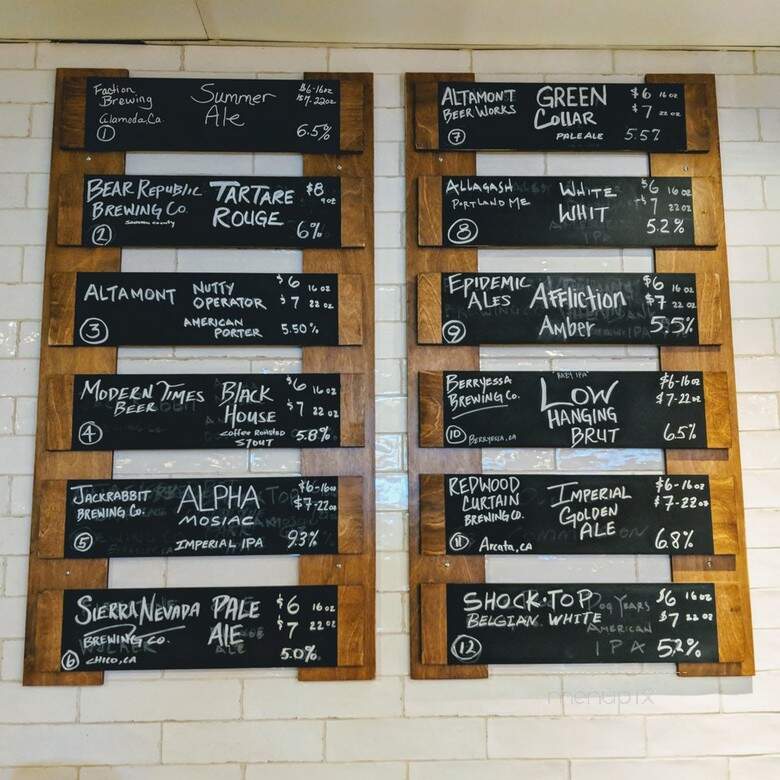 Faction Summer $6-16oz
Brewing Ale $7-22oz
Alameda, Ca.
1 6.5%
BEAR REPUBLIC TARTARE $8
BREWING CO. ROUGE 9oz
2 6%
ALTAMONT NUTTY $6 16oz
OPERATOR $7 22oz
3 AMERICAN
PORTER 5.50%
MODERN TIMES BLACK $6 16oz
BEER HOUSE $7 22oz
4 coffee Roasted
STOUT 5.8%
JACKRABBIT ALPHA $6-16oz
BREWING Co. MOSIAC $7-22oz
5 IMPERIAL IPA 9.3%
SIERRA NEVADA PALE $6 16oz
BREWING CO. ALE $7 22oz
6 CHICO, CA 5.0%
ALTAMONT GREEN $6 16oz
BEER WORKS Collar $7 22oz
7 PALE ALE 5.57
ALLAGASH WHITE $6 16oz
PORTLAND ME WHIT $7 22oz
8 5.2%
EPIDEMIC Affliction $6 16oz
ALES Amber $7 22oz
9 5.5%
"BABY IPA"
BERRYESSA LOW $6-16oz
BREWING CO. HANGING $7-22oz
10 BERRYESSA, CA BRUT 6.5%
REDWOOD IMPERIAL $6-16oz
CURTAIN GOLDEN $7-22oz
BREWING CO. ALE
11 Arcata, CA 6.8%
SHOCK-TOP Dog Years $6 16oz
BELGIAN WHITE AMERICAN $7 22oz
12 IPA 5.2%
menupix